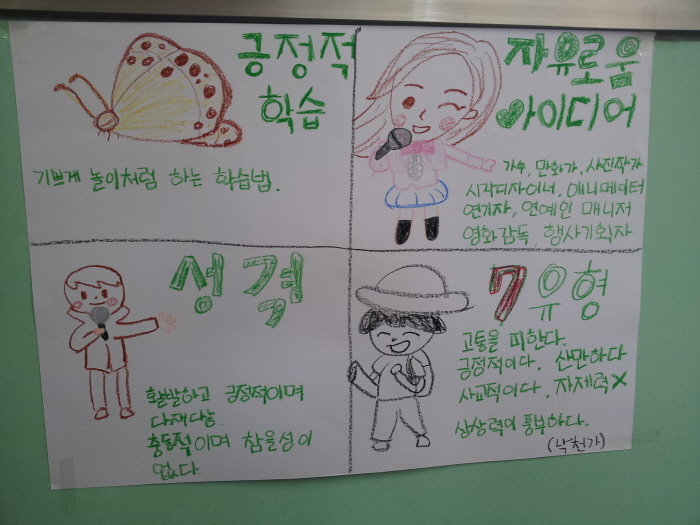 긍정적
학습
기쁘게 놀이처럼 하는 학습법.
자유로움
아이디어
가수, 만화가, 사진작가
시각디자이너, 애니메이터
연기자, 연예인 매니저
영화감독 행사기획자
성격
활발하고 긍정적이며
다재다능.
충동적이며 참을성이
없다.
7유형
고통을 피한다.
긍정적이다. 산만하다
사교적이다. 자제력X
상상력이 풍부하다.
(낙천가)